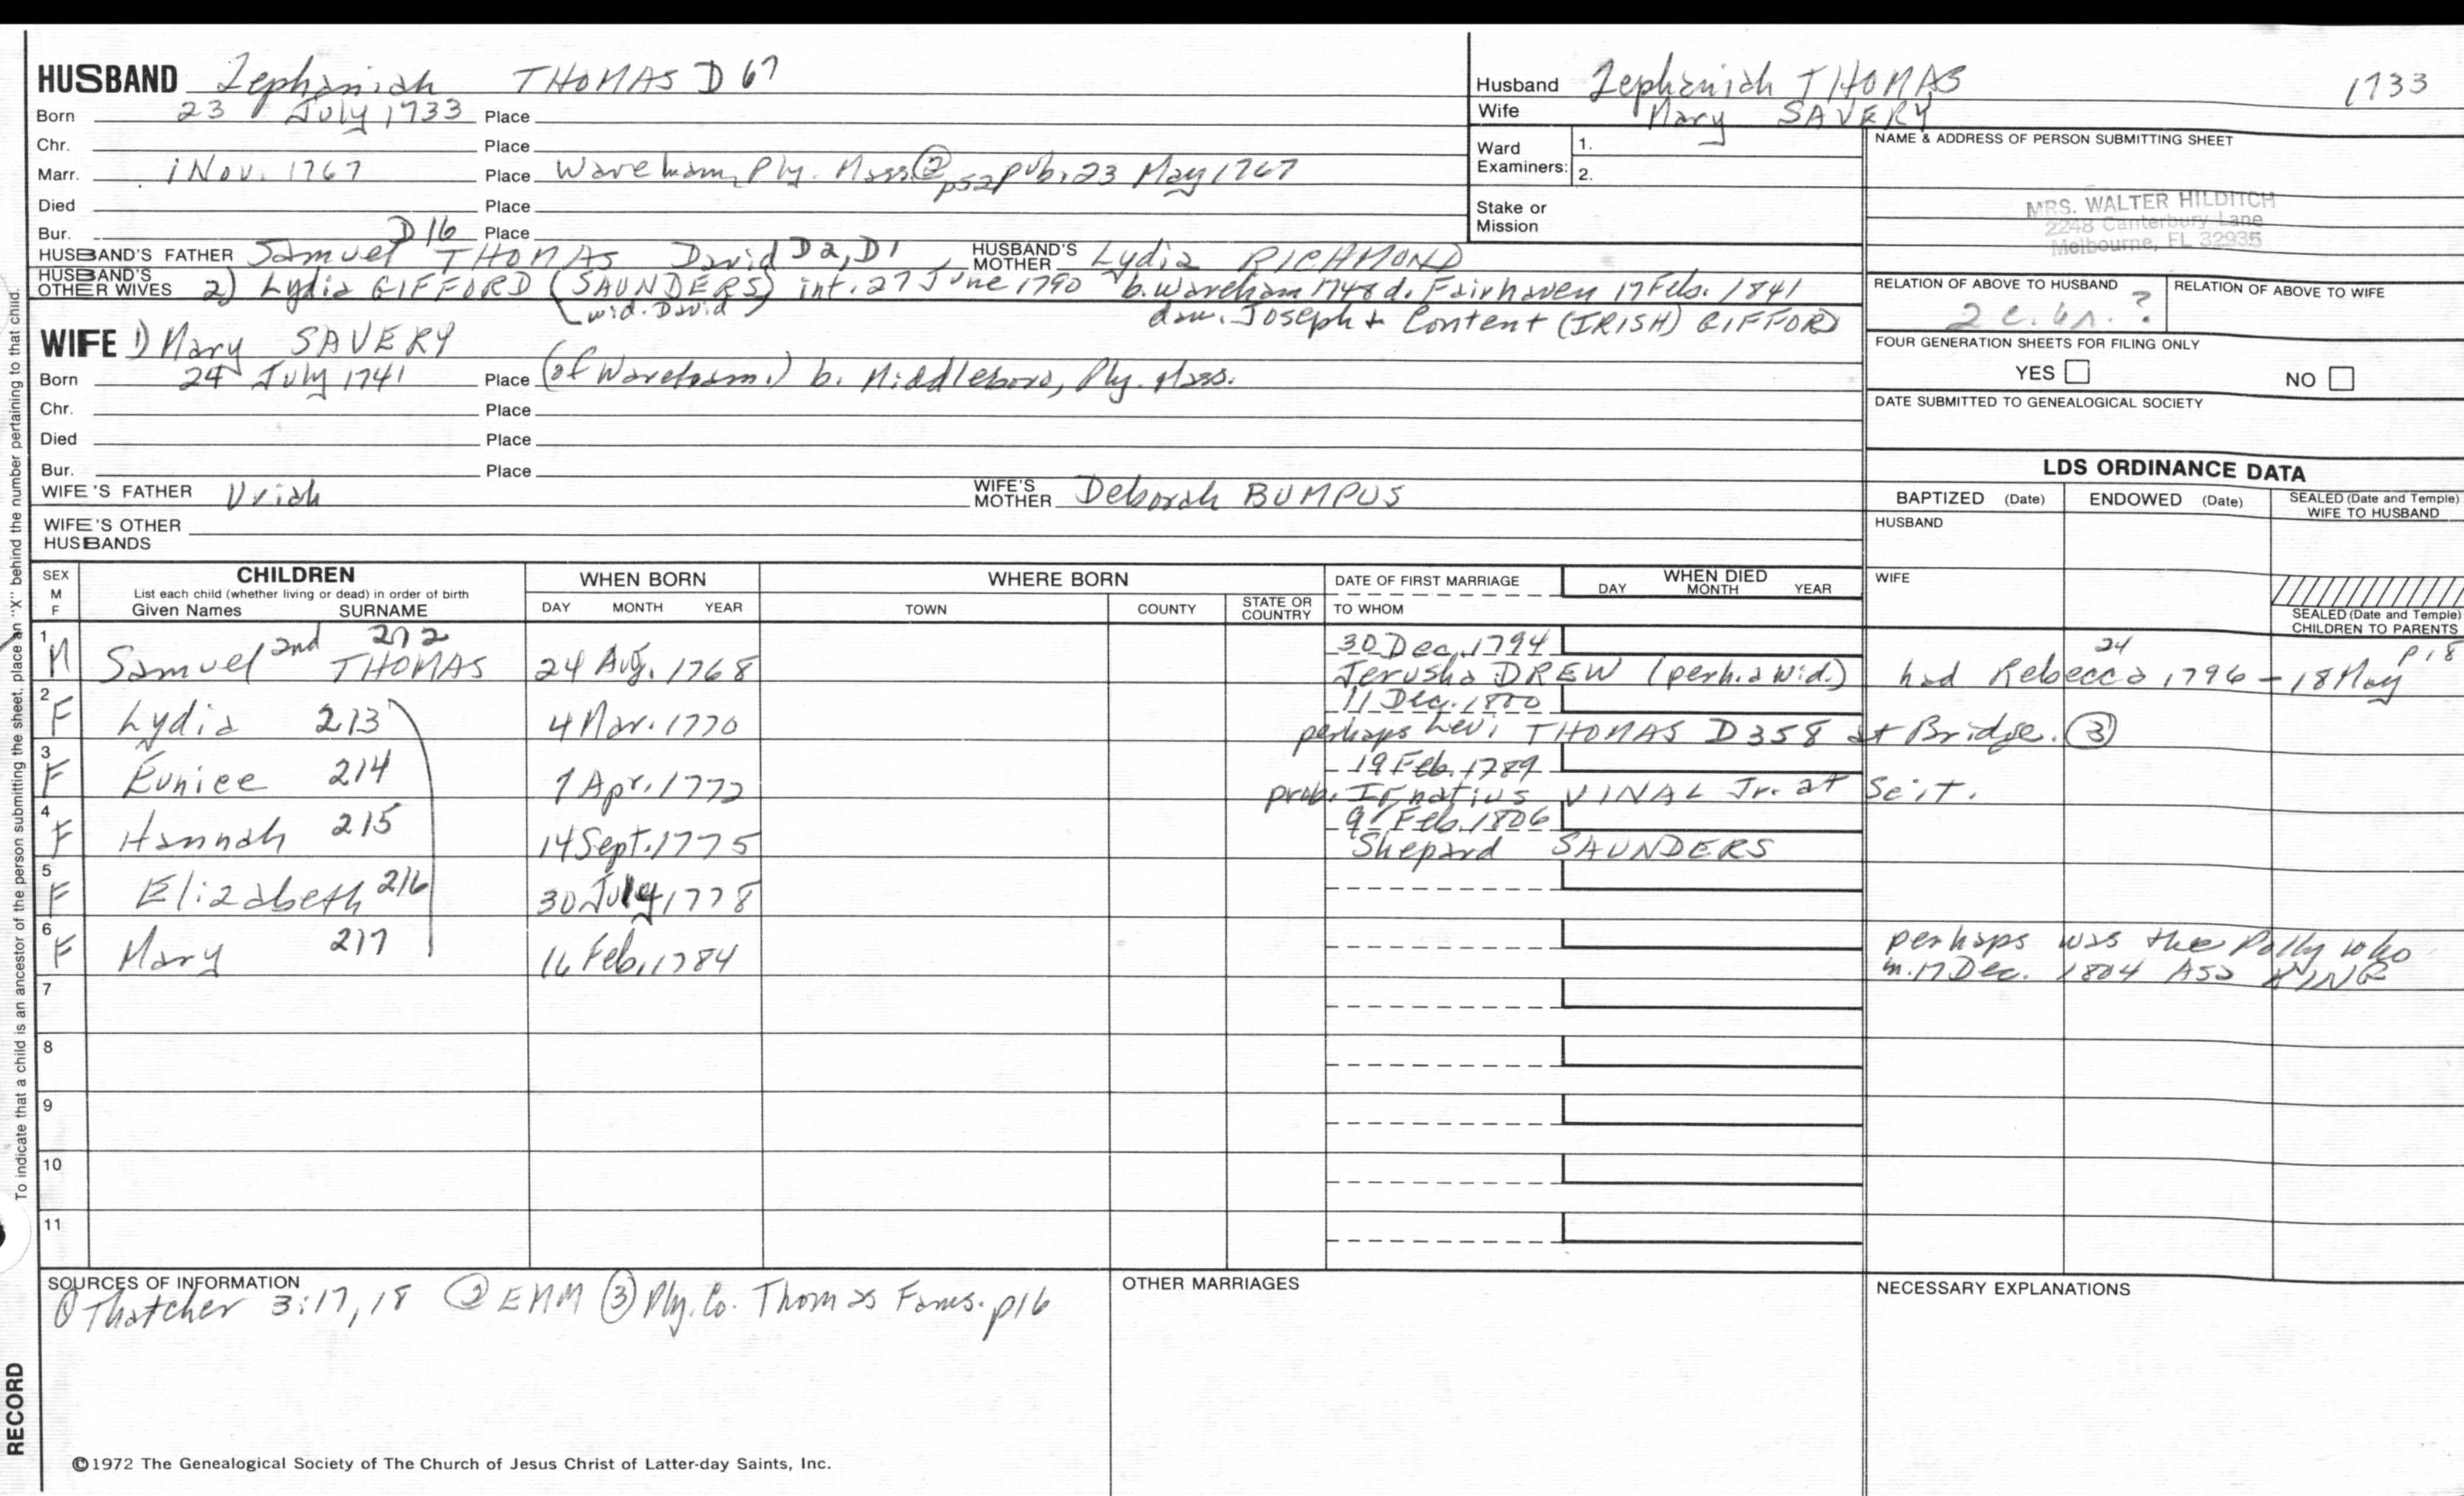 HUSBAND Zephaniah THOMAS D 67
Born 23 July 1733 Place
Chr. Place
Marr. 1 Nov. 1767 Place Wareham, Ply. Mass. ② p52 pub. 23 May 1767
Died Place
Bur. Place
HUSBAND'S FATHER Samuel D16 THOMAS David D2, D1 HUSBAND'S MOTHER Lydia RICHMOND
HUSBAND'S OTHER WIVES 2) Lydia GIFFORD (SAUNDERS) int. 27 June 1790 b. Wareham 1748 d. Fairhaven 17 Feb. 1841
(wid. David) dau. Joseph + Content (IRISH) GIFFORD
WIFE 1) Mary SAVERY
Born 24 July 1741 Place (of Wareham.) b. Middleboro, Ply. Mass.
Chr. Place
Died Place
Bur. Place
WIFE'S FATHER Uriah WIFE'S MOTHER Deborah BUMPUS
WIFE'S OTHER HUSBANDS
Husband Zephaniah THOMAS 1733
Wife Mary SAVERY
Ward Examiners: 1.
2.
Stake or Mission
NAME & ADDRESS OF PERSON SUBMITTING SHEET
MRS. WALTER HILDITCH
2248 Canterbury Lane
Melbourne, FL 32935
RELATION OF ABOVE TO HUSBAND RELATION OF ABOVE TO WIFE
2 c. 6r. ?
FOUR GENERATION SHEETS FOR FILING ONLY
YES NO
DATE SUBMITTED TO GENEALOGICAL SOCIETY
LDS ORDINANCE DATA
BAPTIZED (Date) ENDOWED (Date) SEALED (Date and Temple) WIFE TO HUSBAND
HUSBAND
WIFE
SEALED (Date and Temple) CHILDREN TO PARENTS
SEX M F
CHILDREN
List each child (whether living or dead) in order of birth
Given Names SURNAME
WHEN BORN
DAY MONTH YEAR
WHERE BORN
TOWN COUNTY STATE OR COUNTRY
DATE OF FIRST MARRIAGE
TO WHOM
WHEN DIED
DAY MONTH YEAR
1 M Samuel 2nd 212 THOMAS 24 Aug. 1768 30 Dec. 1794
Jerusha DREW (perh. a wid.) had Rebecca 1796 – 18 May 24 p18
2 F Lydia 213 4 Mar. 1770 11 Dec. 1800
perhaps Levi THOMAS D358 at Bridge. ③
3 F Eunice 214 7 Apr. 1772 19 Feb. 1789
prob. Ignatius VINAL Jr. at Scit.
4 F Hannah 215 14 Sept. 1775 9 Feb. 1806
Shepard SAUNDERS
5 F Elizabeth 216 30 July 1778
6 F Mary 217 16 Feb. 1784 perhaps was the Polly who
m. 17 Dec. 1804 Asa KING
7
8
9
10
11
SOURCES OF INFORMATION
① Thatcher 3:17, 18 ② EMM ③ Ply. Co. Thomas Fams. p16
OTHER MARRIAGES
NECESSARY EXPLANATIONS
©1972 The Genealogical Society of The Church of Jesus Christ of Latter-day Saints, Inc.
To indicate that a child is an ancestor of the person submitting the sheet, place an "X" behind the number pertaining to that child.
RECORD